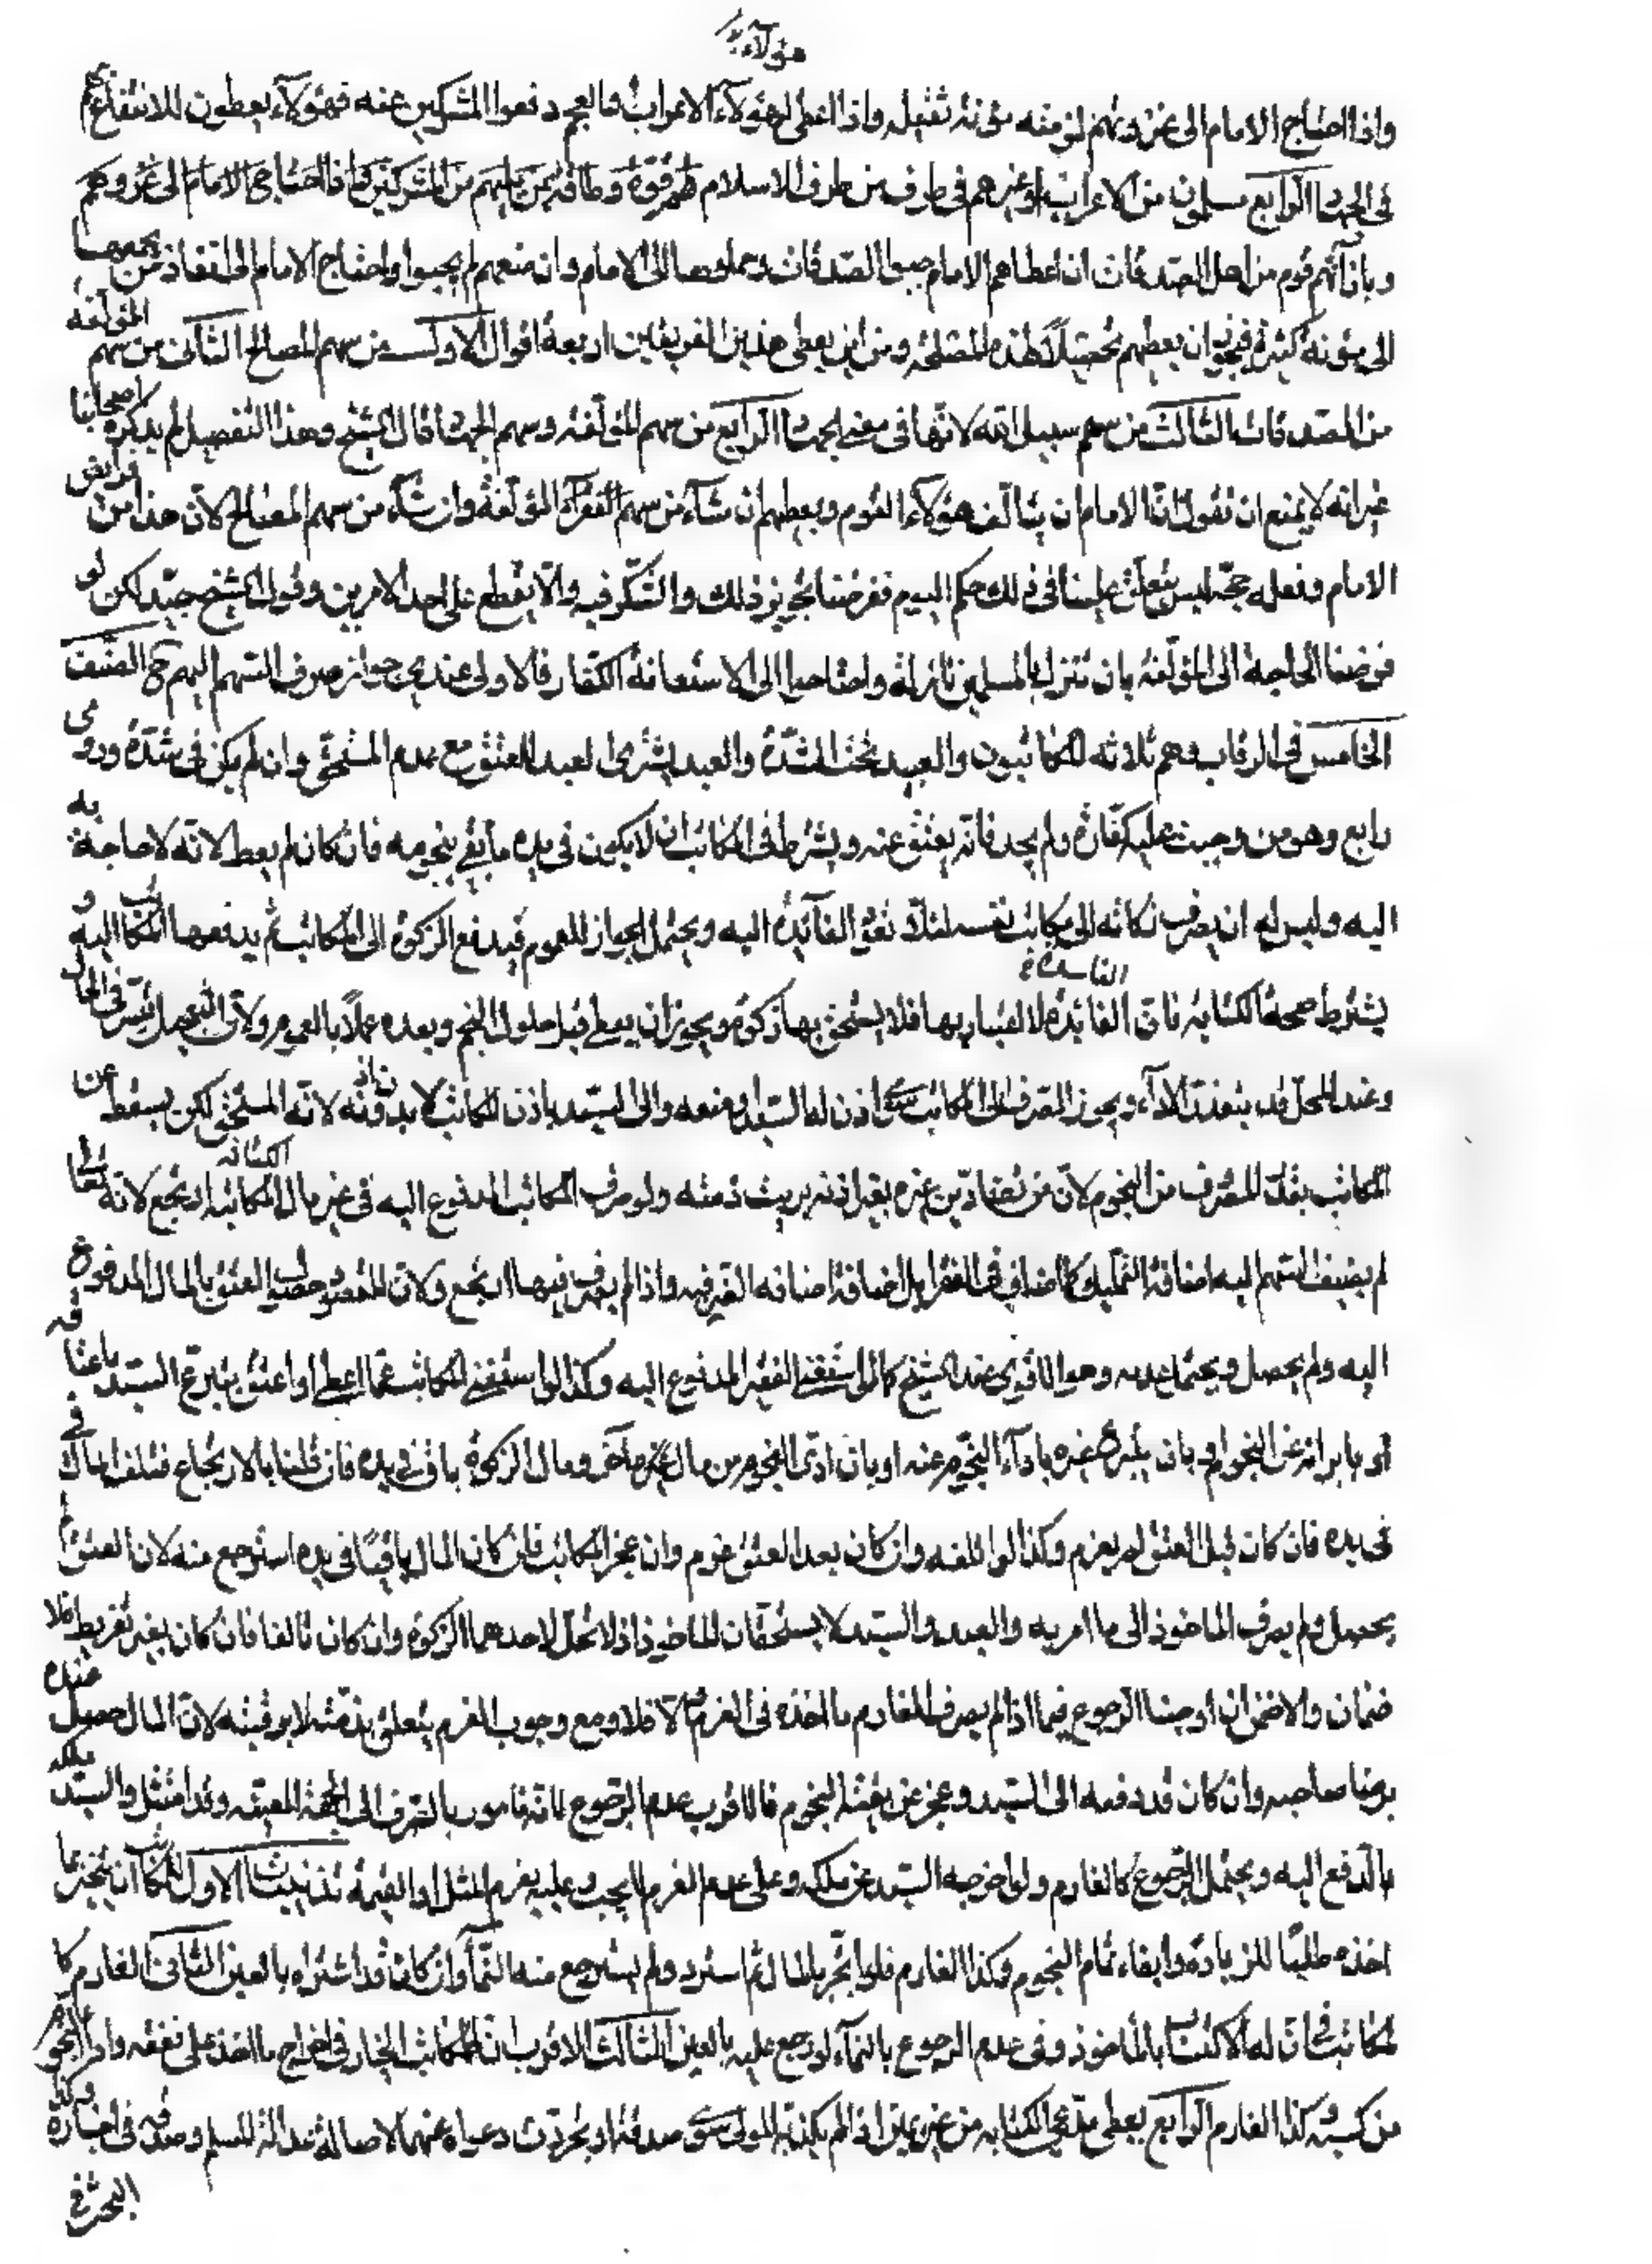 هؤلاء
واذا احتاج الامام الى غزوهم لزمته مؤنة ثقيلة واذا اعطى لهؤلاء الاعراب فالعجم دفعوا المشركين عنه فهؤلاء يعطون للانتفاع بهم
في الجهاد الرابع مسلمون من الاعراب او غيرهم في طرف من طرف الاسلام لهم قوة وطاقة بمن يليهم من المشركين فاذا احتاج الامام الى غزوهم
وبازائهم قوم من اهل الصدقات ان اعطاهم الامام جبوا الصدقات وحملوها الى الامام وان منعهم لم يجبوا واحتاج الامام الى انفاذ من يجبيها
الى مؤنة كثيرة فيجوز ان يعطيهم تحصيلاً لهذه المصلحة ومن اين يعطى هذين الفريقين اربعة اقوال الاول من سهم المصالح الثاني من سهم المؤلفة
من الصدقات الثالث من سهم سبيل الله لانها في معنى الجهاد الرابع من سهم المؤلفة وسهم الجهاد قال الشيخ وهذا التفصيل لم يذكره اصحابنا
غير انه لا يمتنع ان نقول ان للامام ان يتألف هؤلاء القوم ويعطيهم ان شاء من سهم الفقراء المؤلفة وان شاء من سهم المصالح لان هذا من فرايض
الامام وفعله حجة ليس يتعلق علينا في ذلك حكم اليوم ففرضنا تجويز ذلك والشك فيه والا يقطع على احد الامرين وقول الشيخ جيد لكن لو
فرضنا الحاجة الى المؤلفة بان تنزل بالمسلمين نازلة واحتاجوا الى الاستعانة بالكفار فالاولى عندي جواز صرف السهم اليهم ح الصنف
الخامس في الرقاب وهم ثلاثة المكاتبون والعبيد تحت الشدة والعبد يشترى لعبد للعتق مع عدم المستحق وان لم يكن في شدة وروى
رابع وهو من وجبت عليه كفارة ولم يجد فانه يعتق عنه ويشترط في المكاتب ان لا يكون في يده ما يفي بنجومه فان كان لم يعط لانه لا حاجة به
اليه وليس له ان يصرف زكاته الى مكاتب نفسه لئلا تعود الفائدة اليه ويحتمل الجواز للعموم فيدفع الزكوة الى المكاتب ثم يدفعها المكاتب اليه و
يشترط صحة الكتابة فان الفاسدة لا اعتبار بها فلا يستحق بها زكوة ويجوز ان يعطى قبل حلول النجم وبعده عملاً بالعموم ولان التعجيل تيسر في الحال
وعند المحل قد يتعذر الاداء ويجوز الصرف الى المكاتب سواء اذن له السيد او منعه والى السيد باذن المكاتب لا بدونه لانه المستحق لكن يسقط عن
المكاتب بقدر المصرف من النجوم لان من قضا دين غيره بغير اذنه بريت ذمته ولو صرف المكاتب المدفوع اليه في غير مال الكتابة ارتجع لانه تعالى
لم يضف السهم اليه اضافة التمليك كما اضاف في الفقراء بل اضافة اضافه الصرفيه واذا لم يصرف فيها ارتجع ولان المقصود حصول العتق بالمال المدفوع
اليه ولم يحصل ويحتمل عدمه وهو الاقوى عند الشيخ كما لو استغنى الفقير المدفوع اليه وكذا لو استغنى المكاتب عما اعطى او اعتق بتبرع السيد باعتاقه
او بابرائه عن النجوم او بان يتبرع غيره باداء النجوم عنه او بان ادى النجوم من مال آخر ومال الزكوة باق في يده فان قلنا بالارتجاع فتلف المال في
في يده فان كان قبل العتق لم يغرم وكذا لو اتلفه وان كان بعد العتق غرم وان عجز المكاتب فان كان المال باقياً في يده استرجع منه لان العتق لم
يحصل ولم يصرف الماخوذ الى ما امر به والعبد والسيد لا يستحقان الماخوذ اذ لا تحل لاحدهما الزكوة وان كان تالفا فان كان بغير تفريط فلا
ضمان والا ضمن ان اوجبنا الرجوع فيما اذا لم يصرف الغارم ما اخذه في الغرم والا فلا ومع وجوب الغرم يتعلق بذمته لا برقبته لان المال حصل عنده
برضا صاحبه وان كان قد دفعه الى السيد وعجز عن بقية النجوم فالاقرب عدم الرجوع لانه مامور بالصرف الى الجهة المعينة وقد امتثل والسيد ملكه
بالدفع اليه ويحتمل الرجوع كالغارم ولو اخرجه السيد عن ملكه وعلى عدم الغرم لا يجب وعليه يغرم المثل او القيمة تذنيبات الاول للمكاتب ان يتجر بما
اخذه طلباً للزيادة وايفاء تمام النجوم وكذا الغارم فلو اتجر بالمال ثم استرد ولم يسترجع منه النماء وان كان قد اشتراه بالعين الثاني الغارم كا
لمكاتب في ان له الاكتساب بالماخوذ وفي عدم الرجوع بالنماء لو رجع عليه بالعين الثالث الاقرب ان للمكاتب الخيار في اخراج ما اخذ على نفقته واداء النجوم
من كسبه وكذا الغارم الرابع يعطى مدعي الكتابة من غير يمين اذا لم يكذبه المولى سواء صدقه او تجردت دعواه عنهما لاصالة عدالة المسلم وصدقه في اخباره وكذا
البحث في